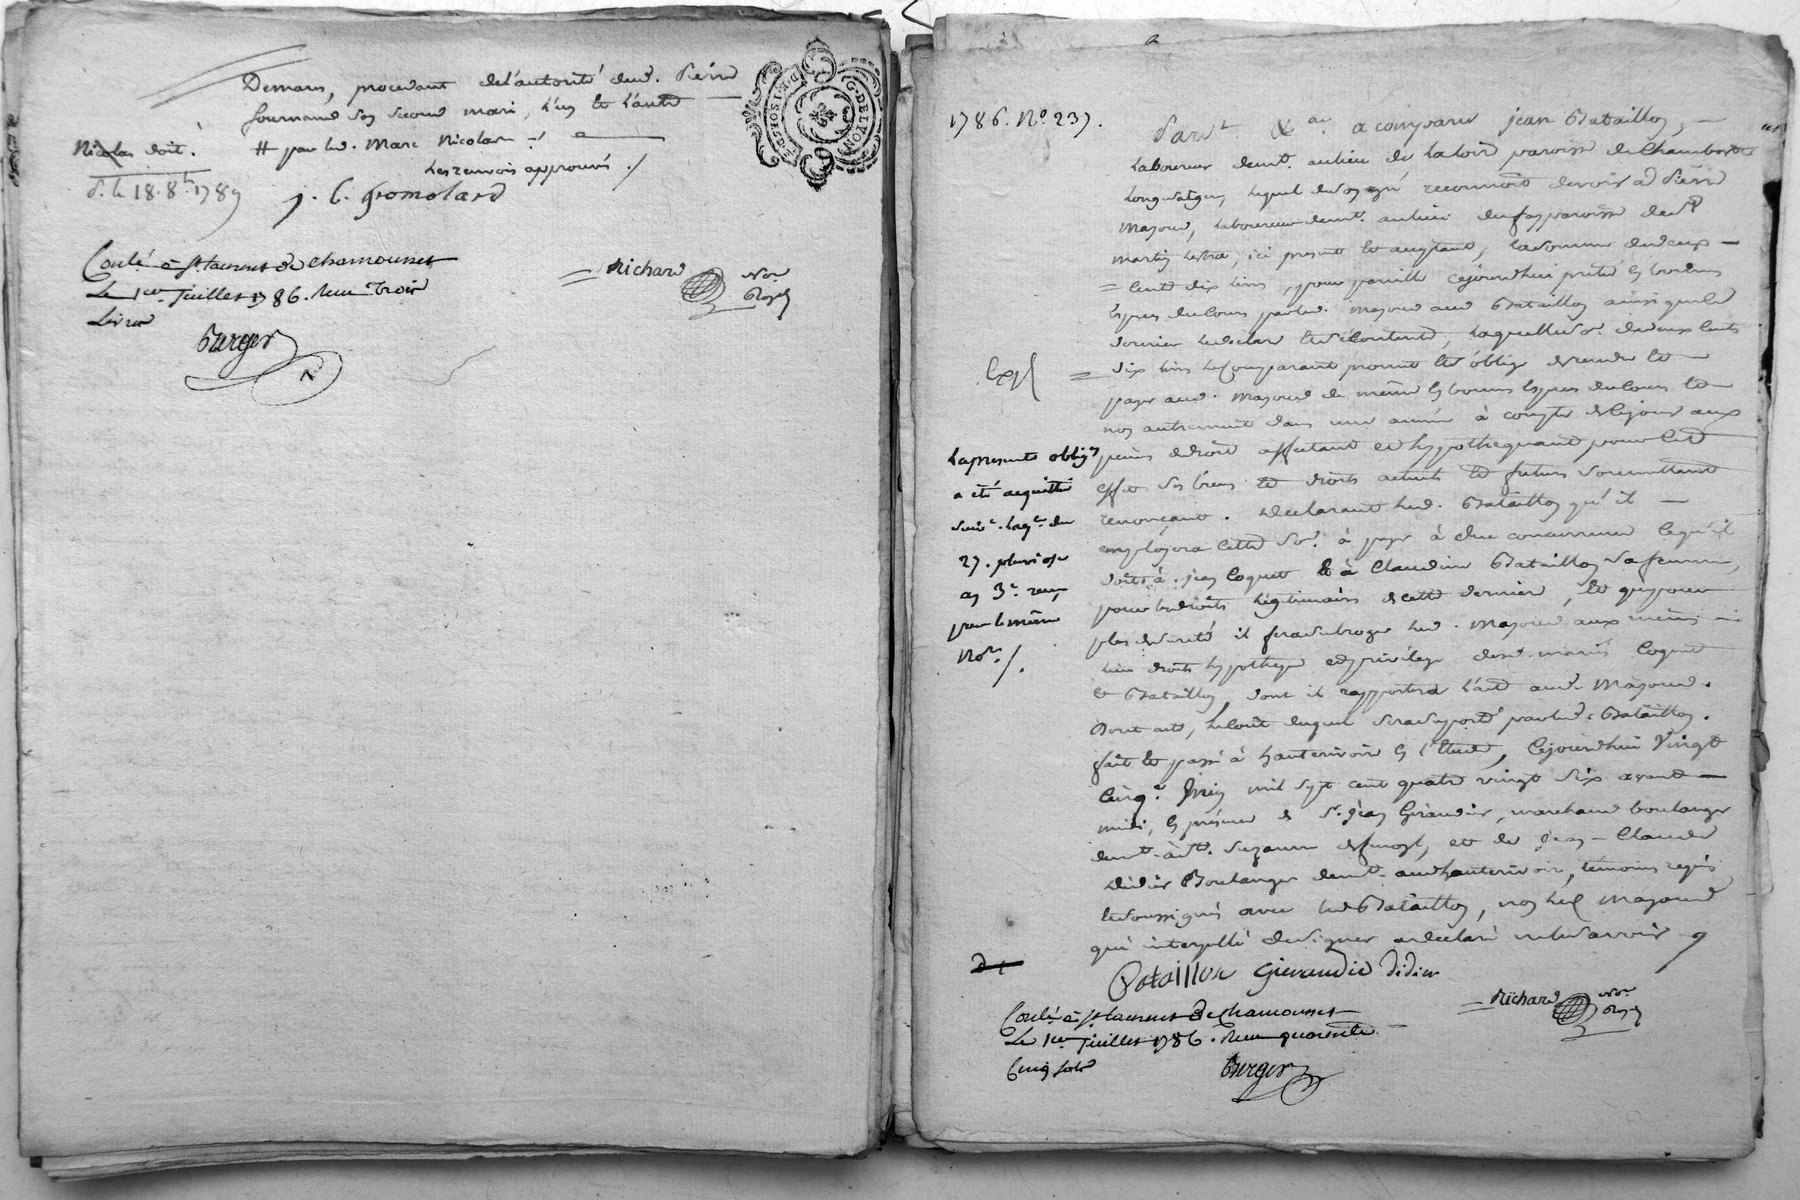 Demars, procedant de l'autorité dud. Pierre
son second mari, d'une et d'autre
# par led. Marc Nicolas
Les renvois approuvés ./
Nicolas doit.
d. le 18. 8bre 1789
j. C. Gromolard
G. DE LYON
Conlé a St Laurent De Chamousset
Le 1er Juillet 1786. Reçu Trois
Livres
Berger
Richard Nore Royal
1786. No. 237.
Pardt &c. a comparu jean Bataillon,
Laboureur demt. au lieu de paroisse de Chambost
Longessaigne, lequel de son gré reconnoit devoir a Pierre
Majour, Laboureur demt. au lieu paroisse de St
martin Lestra, ici present et acceptant, la somme de deux
= cents dix livres, pour pareille cejourdhui prêté en bonnes
espèces de cours par led. Majour aud Bataillon ainsi que led
dernier le declare et s'en contente, laquelle so. de deux cents
= dix livres le comparant promet et s'oblige de rendre et
payer aud. Majour de même en bonnes espèces de cours et
non autrement dans une année à compter de ce jour aux
peines de droit affectant et hypothequant pour cet
effet ses biens et droits actuels et futurs soumettant
renonçant. Declarant led. Bataillon qu'il
employera cette so. à payer à due concurrence ce qu'il
doit à jean Coquet et à Claudine Bataillon sa femme,
pour les droits légitimaires de cette derniere, et que pour
plus de sureté il fera subroger led. Majour aux mêmes
lieu droits hypotheque et privilège desd. mariés Coquet
et Bataillon, dont il rapportera l'acte aud. Majour.
Dont acte, le cout duquel sera suporté par led. Bataillon.
fait et passé à hauterivoire en l'Etude, Cejourdhui Vingt
Cinq Juin mil sept cent quatre vingt six avant
midi, en présence de Sr. jean Giraudier, marchand boulanger
demt. à Ste. et de jean-Claude
Didier Boulanger demt. aud hauterivoire, témoins requis
et soussignés avec led Bataillon, non led Majour
qui interpellé de signer a declaré ne le savoir
Exp
La presente oblig.
a été acquittée
suivt. acq. du
27. pluviose
an 3e. reçue
par le même
Nore ./.
Bataillon Gieraudié Didier
Richard Nore Royal
Conlé a St Laurent De Chamousset
Le 1er Juillet 1786. Reçu quarante
Cinq sols
Berger